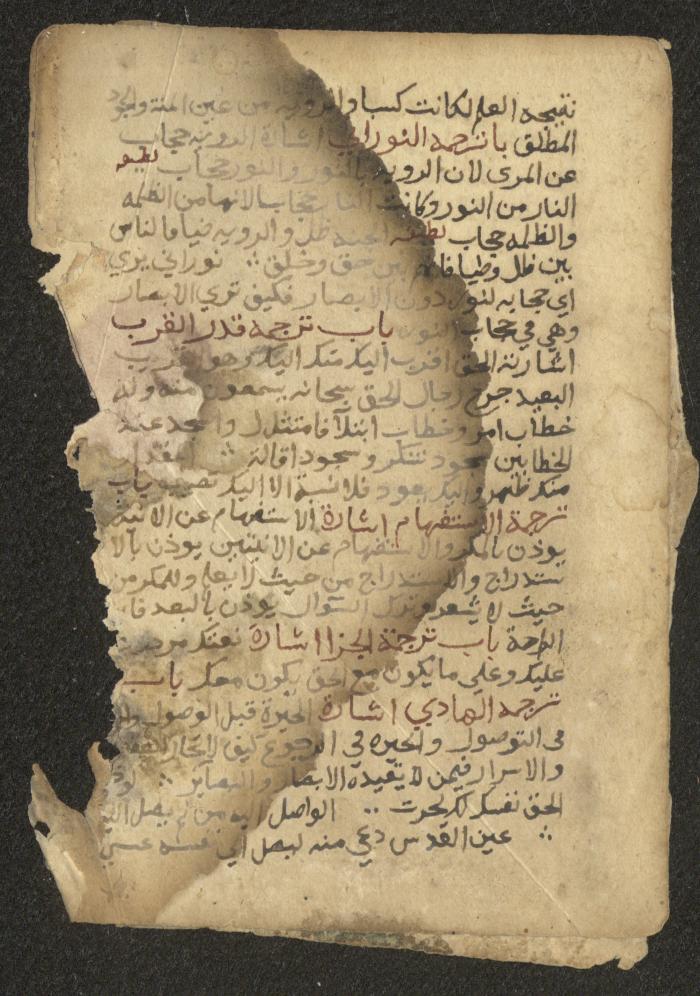 نتيجه العلم لكانت كسبا والرويه من عين المنة والجود
المطلق باب ترجمه النوراني اشارة الرويه حجاب
عن المرى لان الرويه بالنور والنور حجاب لطيفه
النار من النور وكانت النار حجاب لانها من الظلمه
والظلمه حجاب لطيفه الجنه ظل والرويه ضيا فالناس
بين ظل وضيا فانهم بين حق وخلق نوراني يري
اي حجابه لنوره دون الابصار فكيف تري الابصار
وهي في حجاب النور باب ترجمه قدر القرب
اشارته الحق اقرب اليك منك اليك وهو القريب
البعيد جرح رجال الحق سبحانه يسمعون منه وله
خطاب امر وخطاب ابتلآ فامتثل واسجد عند
الخطابين سجود شكر وسجود اقالة
منك ظهر واليك يعود فلا نسبة الا اليك نصيب باب
ترجمة الاستفهام اشارة الاستفهام عن الانيه
يوذن بالمكر والاستفهام عن الاثنين يوذن بالا
ستدراج والاستدراج من حيث لا يعلم والمكر من
حيث لا يشعر وترك السوال يوذن بالبعد
باب ترجمة الجزا اشارة
عليك وعلي ما يكون مع الحق يكون معك باب
ترجمه الهادي اشارة الحيرة قبل الوصول
في التوصول والحيره في الرجوع كيف لا تحار
والاسرار فيمن لا تقيده الابصار والبصاير
الحق نفسك لك لحرت الواصل اليه من لم يصل اليه
عين القدس دعي منه ليصل الي